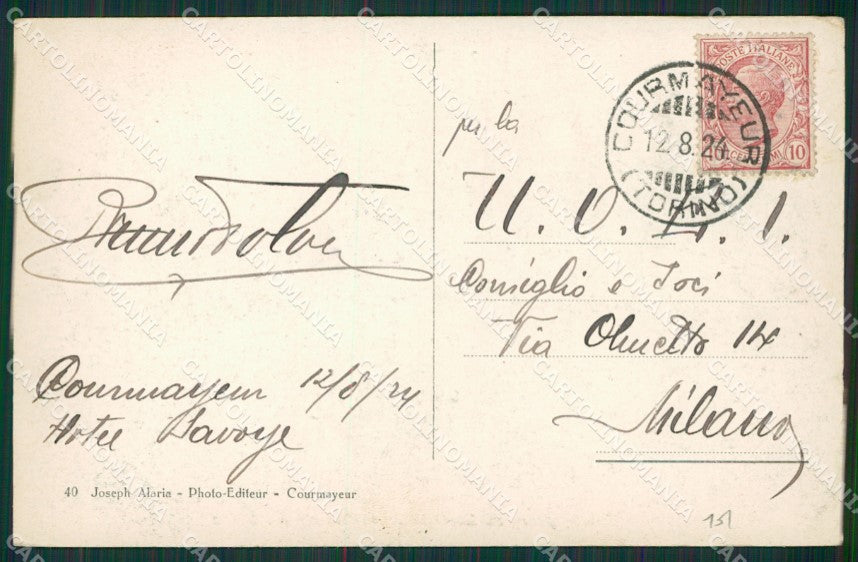 POSTE ITALIANE
10
COURMAYEUR
12.8.24
(TORINO)
per la
U. O. E. I.
Consiglio e Soci
Via Olmetto 14
Milano
Courmayeur 12/8/24
Hotel Savoye
40 Joseph Alaria - Photo-Editeur - Courmayeur
151
CARTOLINOMANIA